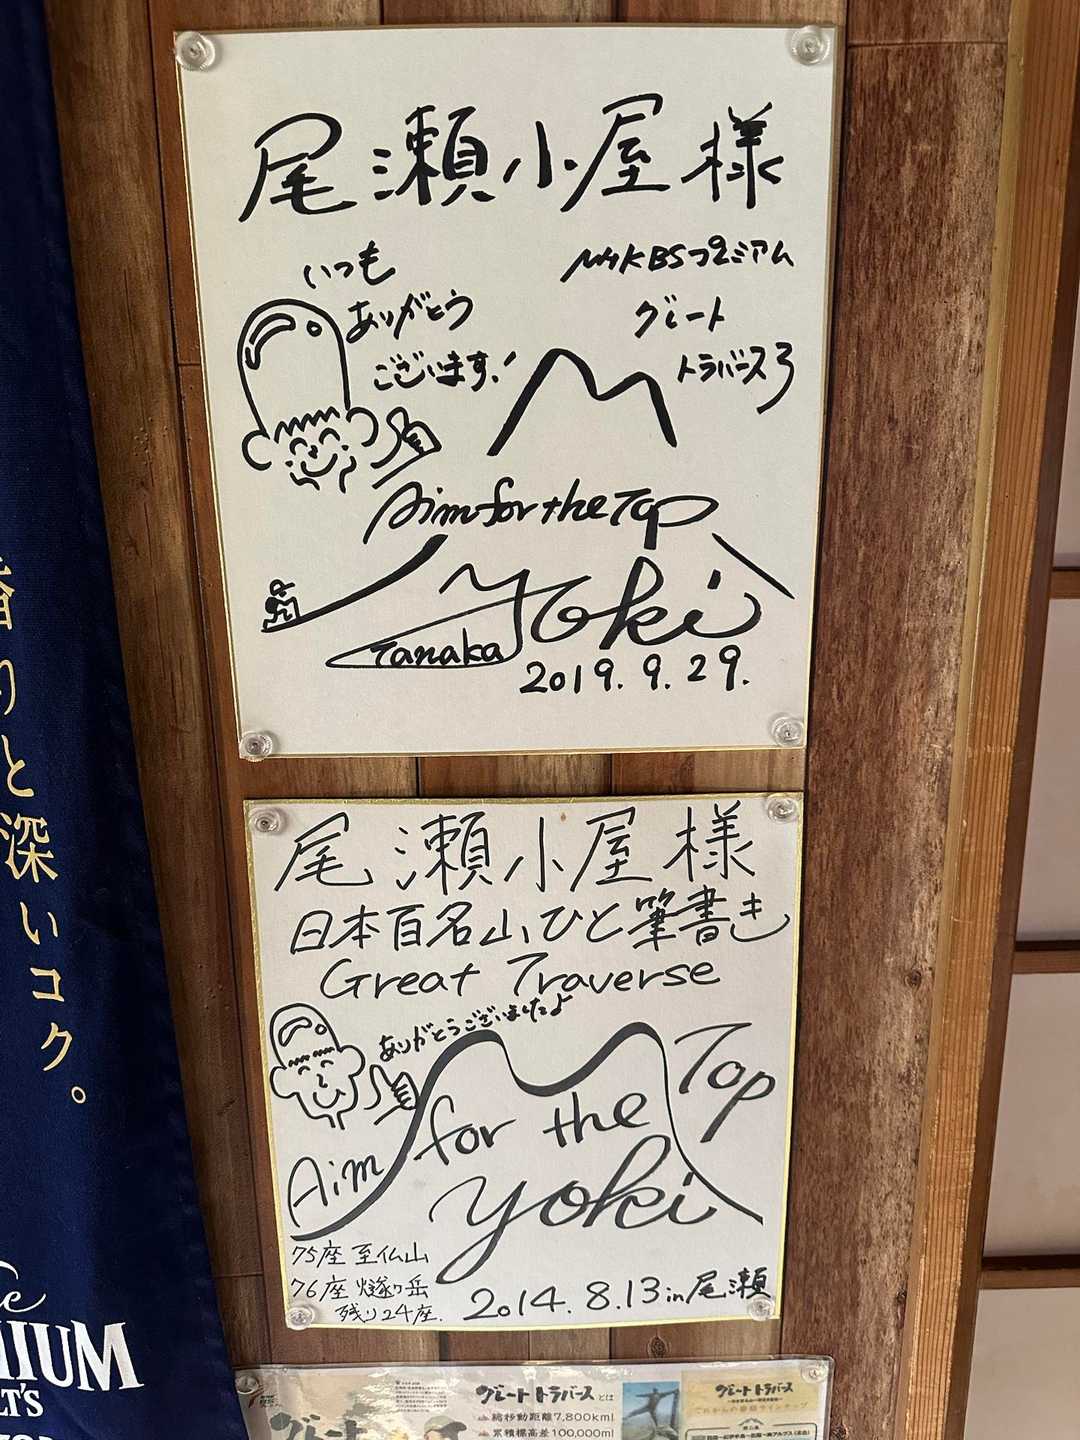 尾瀬小屋様
いつも
ありがとう
ございます!
NHKBSプレミアム
グレート
トラバース3
Aim for the Top
Yoki
Tanaka
2019.9.29.
尾瀬小屋様
日本百名山ひと筆書き
Great Traverse
ありがとうございましたよ
Aim for the Top
yoki
75座 至仏山
76座 燧ヶ岳
残り24座.
2014.8.13 in 尾瀬
香りと深いコク。
グレートトラバースとは
総移動距離7,800km!
累積標高差100,000m!
グレート
グレートトラバース